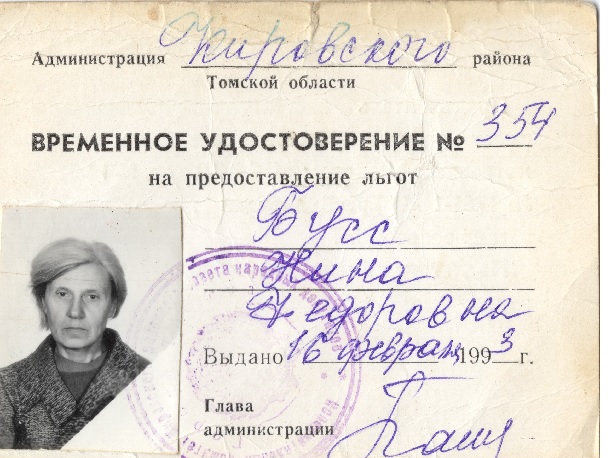 Администрация Кировского района
Томской области
ВРЕМЕННОЕ УДОСТОВЕРЕНИЕ № 354
на предоставление льгот
Бусс
Нина
Федоровна
Выдано 16 феврал 1993 г.
Глава
администрации